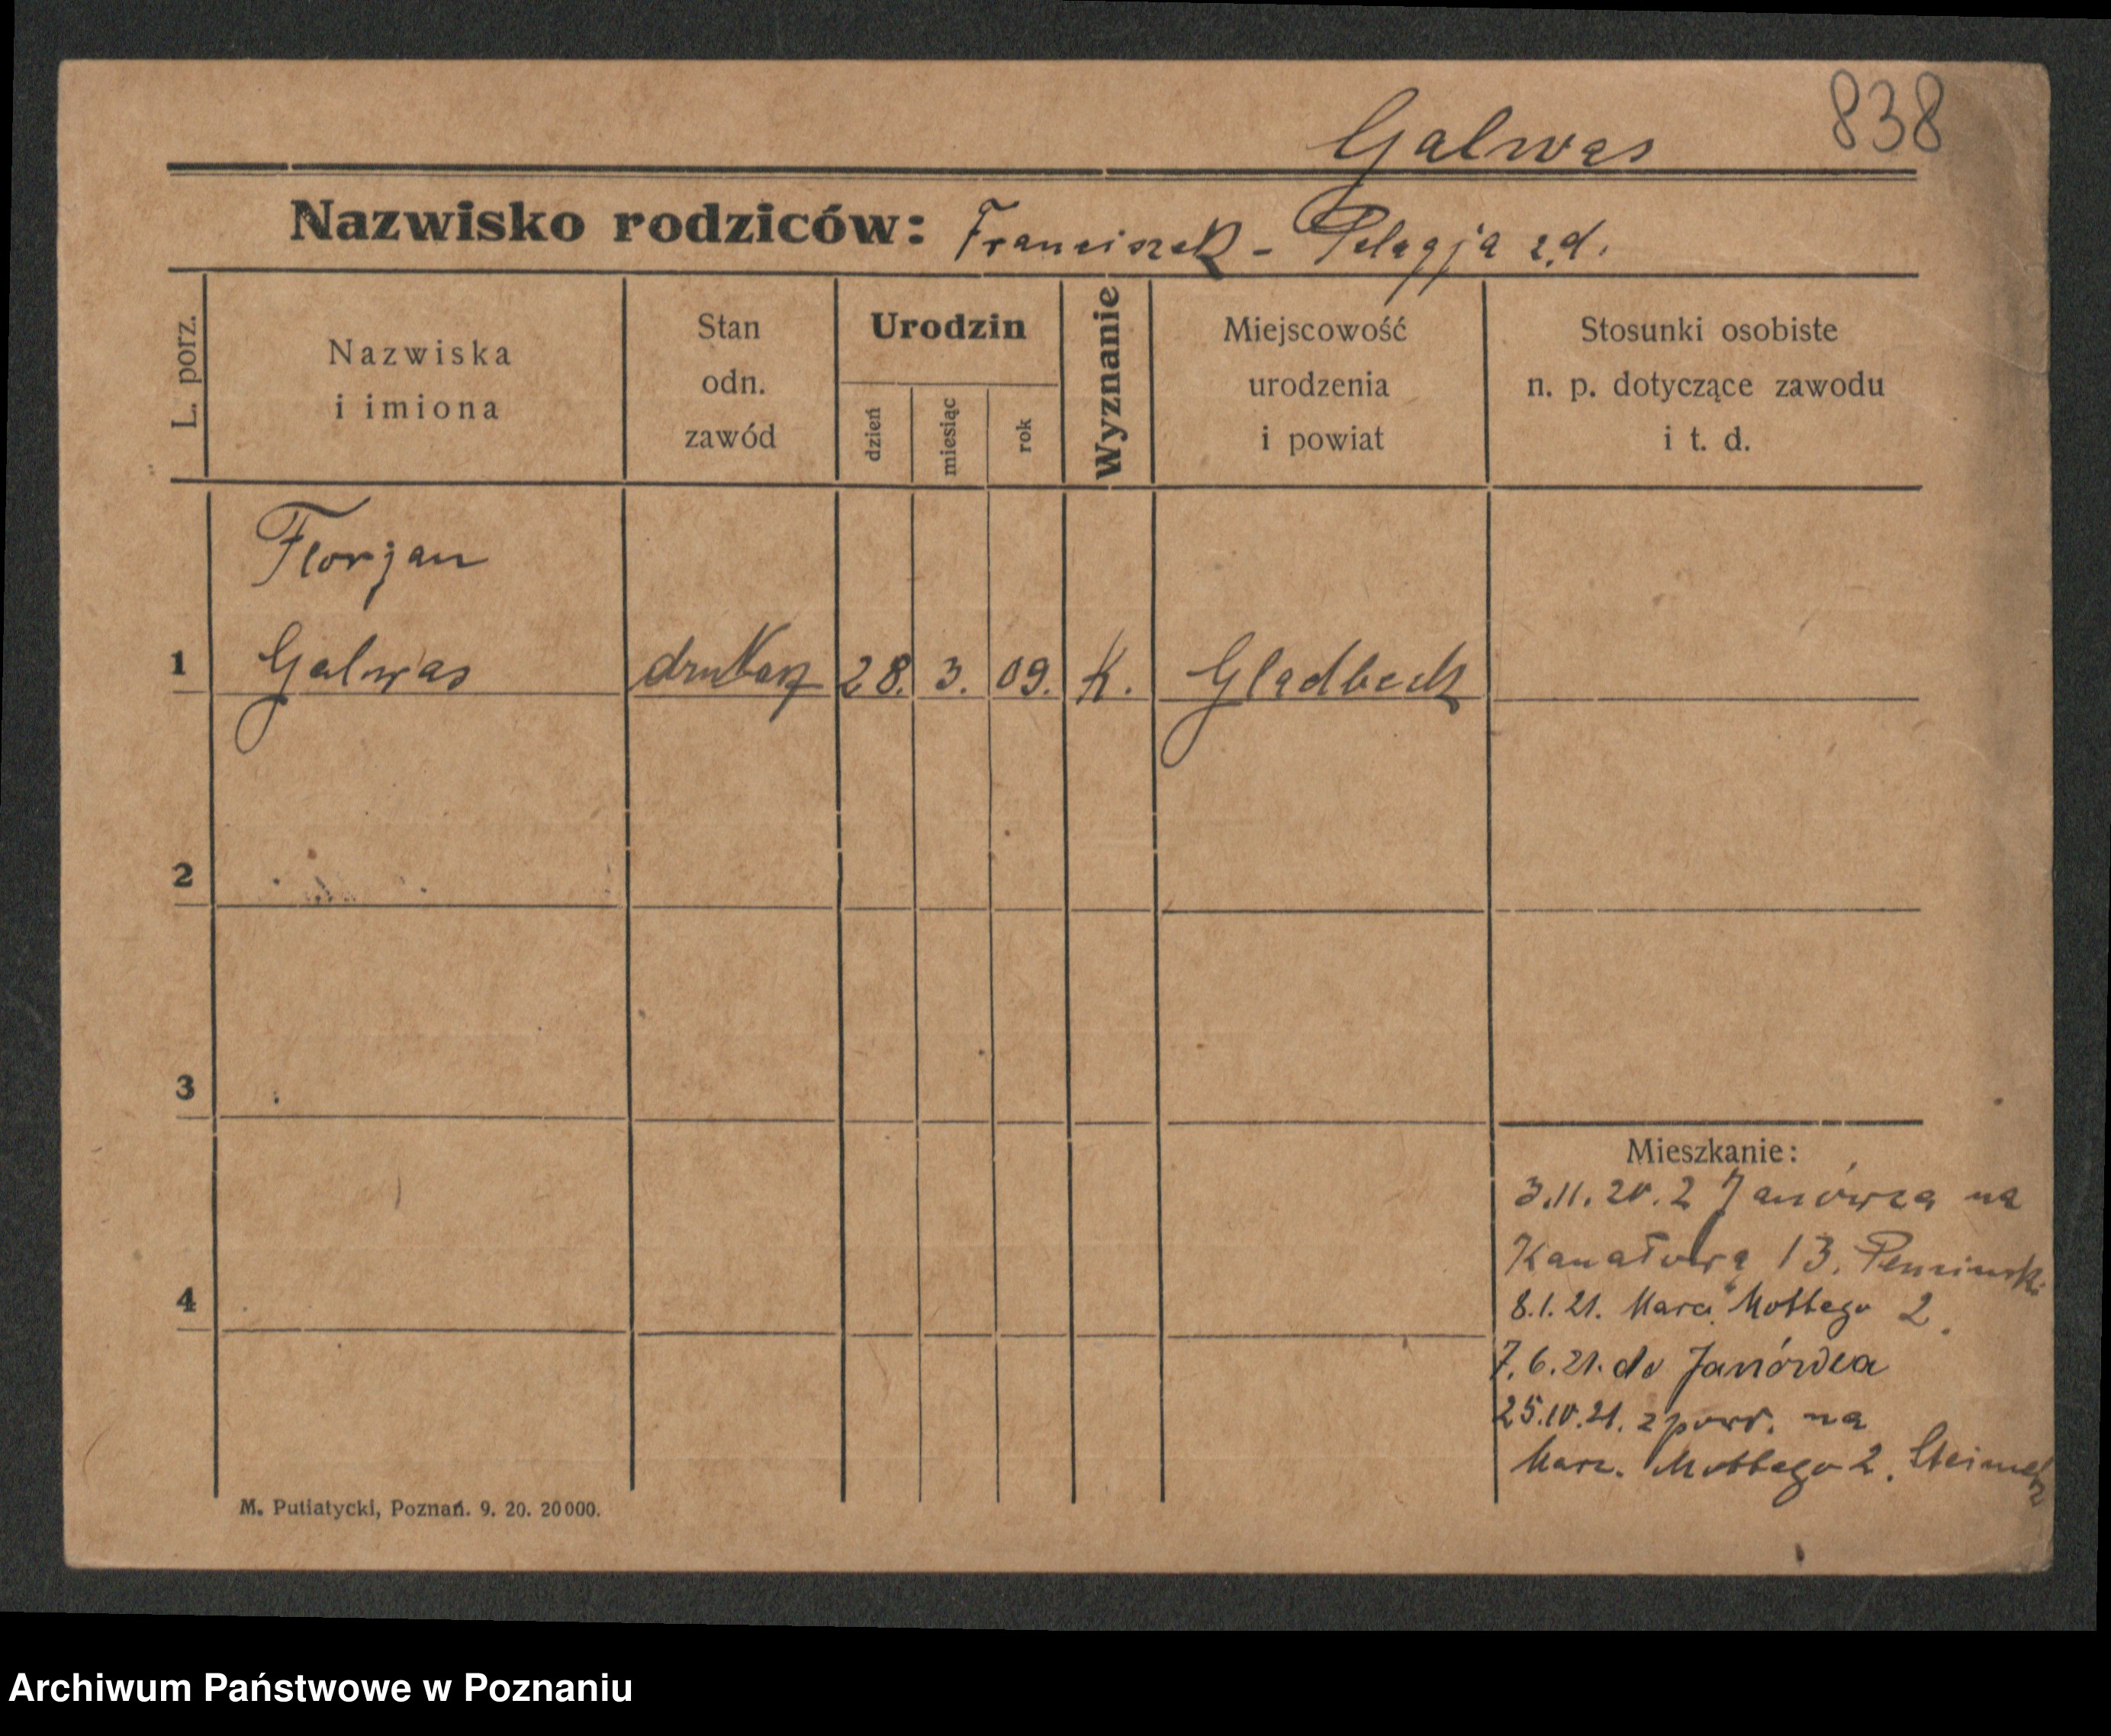 838
Galwas
Nazwisko rodziców: Franciszek - Pelagja z.d.
L. porz.
Nazwiska
i imiona
Stan
odn.
zawód
Urodzin
dzień
miesiąc
rok
Wyznanie
Miejscowość
urodzenia
i powiat
Stosunki osobiste
n. p. dotyczące zawodu
i t. d.
Florjan
1 Galwas drukarz 28. 3. 09. K. Gladbeck
2
3
Mieszkanie:
3.11.20. z Janówca na
Kanałową 13.
4
8.1.21. Marc. Mottego 2.
7.6.21. do Janówca
25.10.21. z powr. na
Marc. Mottego 2.
M. Putiatycki, Poznań. 9. 20. 20000.
Archiwum Państwowe w Poznaniu